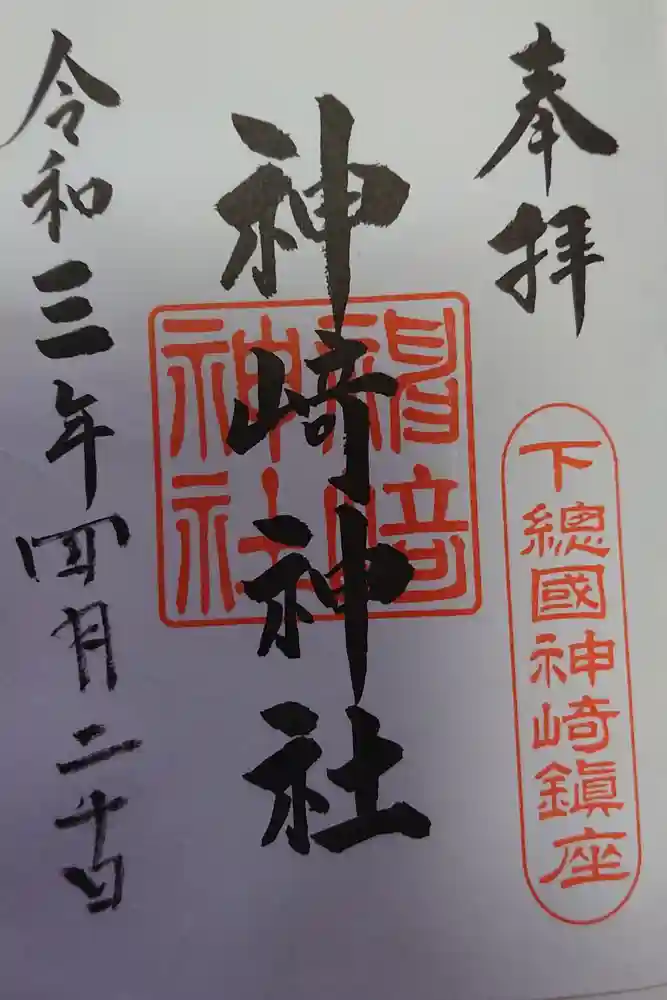 奉拝
下總國神崎鎭座
神崎神社
神社
令和三年四月二十日